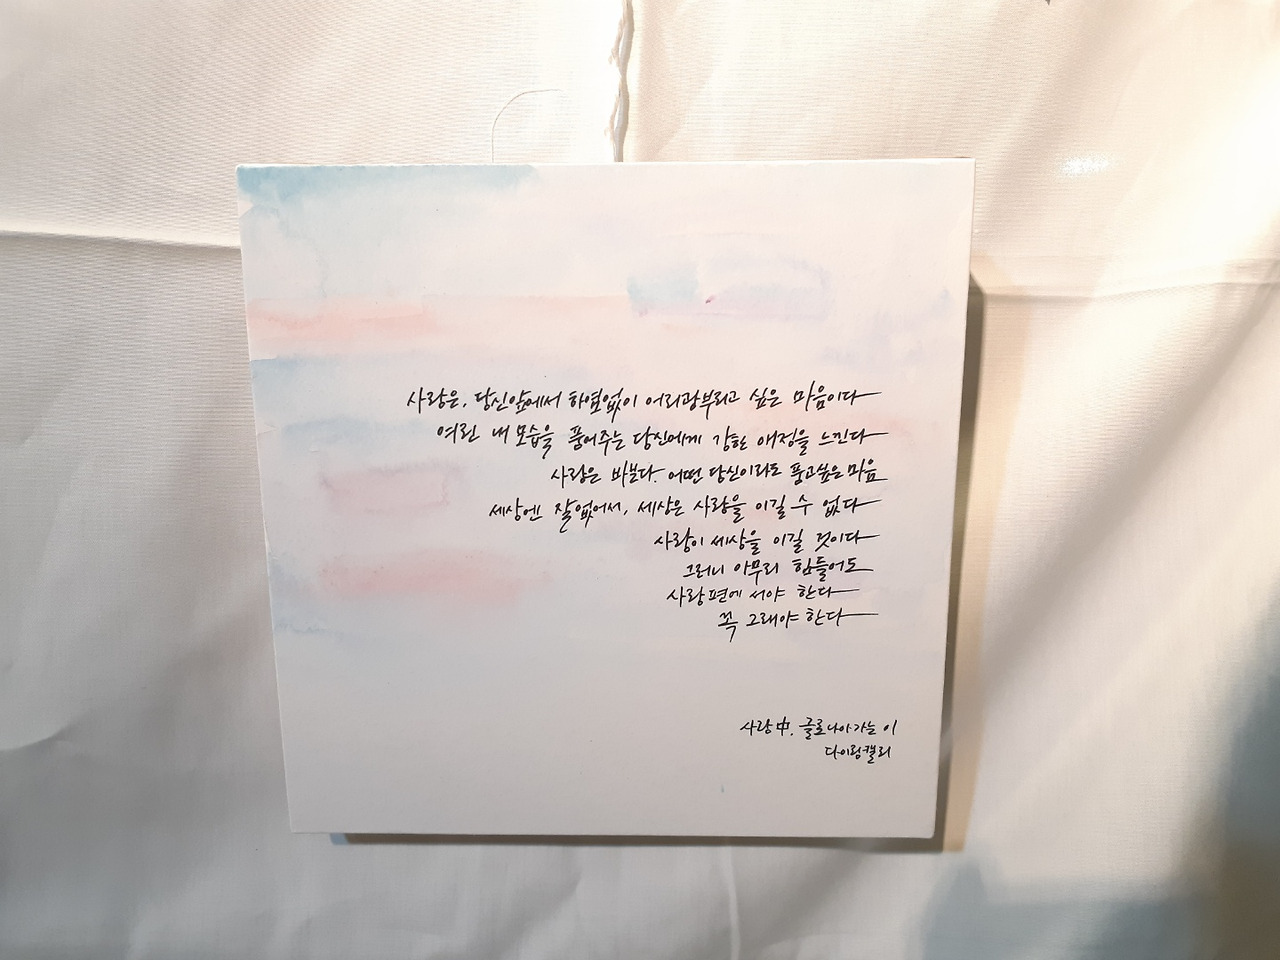 사랑은, 당신앞에서 하염없이 어리광부리고 싶은 마음이다
여린 내 모습을 품어주는 당신에게 강한 애정을 느낀다
사랑은 바쁘다. 어떤 당신이라도 품고싶은 마음
세상엔 잘없어서, 세상은 사랑을 이길 수 없다
사랑이 세상을 이길 것이다
그러니 아무리 힘들어도
사랑편에 서야 한다
꼭 그래야 한다
사랑中, 글로나아가는 이
다이렁캘리